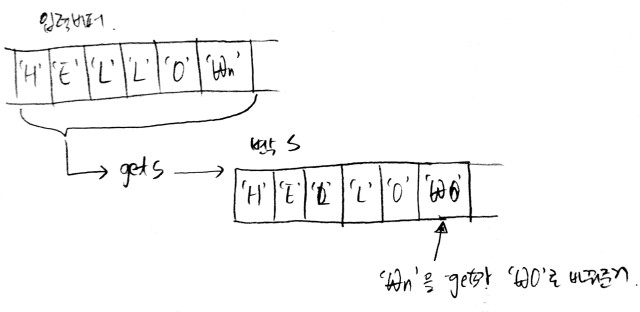 입력버퍼.
'H' 'E' 'L' 'L' 'O' '₩n'
gets
변수 S
'H' 'E' 'L' 'L' 'O' '₩0'
'₩n'을 gets가 '₩0'로 바꿔준거.